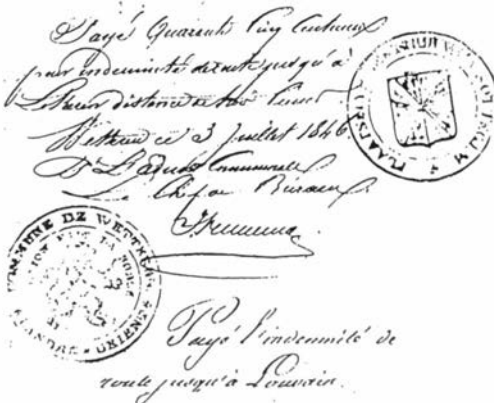 Payé Quarante Cinq Centimes
pour indemnité de route jusqu'à
distance de trois lieues
Wetteren ce 3 Juillet 1846
Communale
Le Chef de Bureau
COMMUNE DE WETTEREN
FLANDRE ORIENT
Payé l'indemnité de
route jusqu'à Louvain.